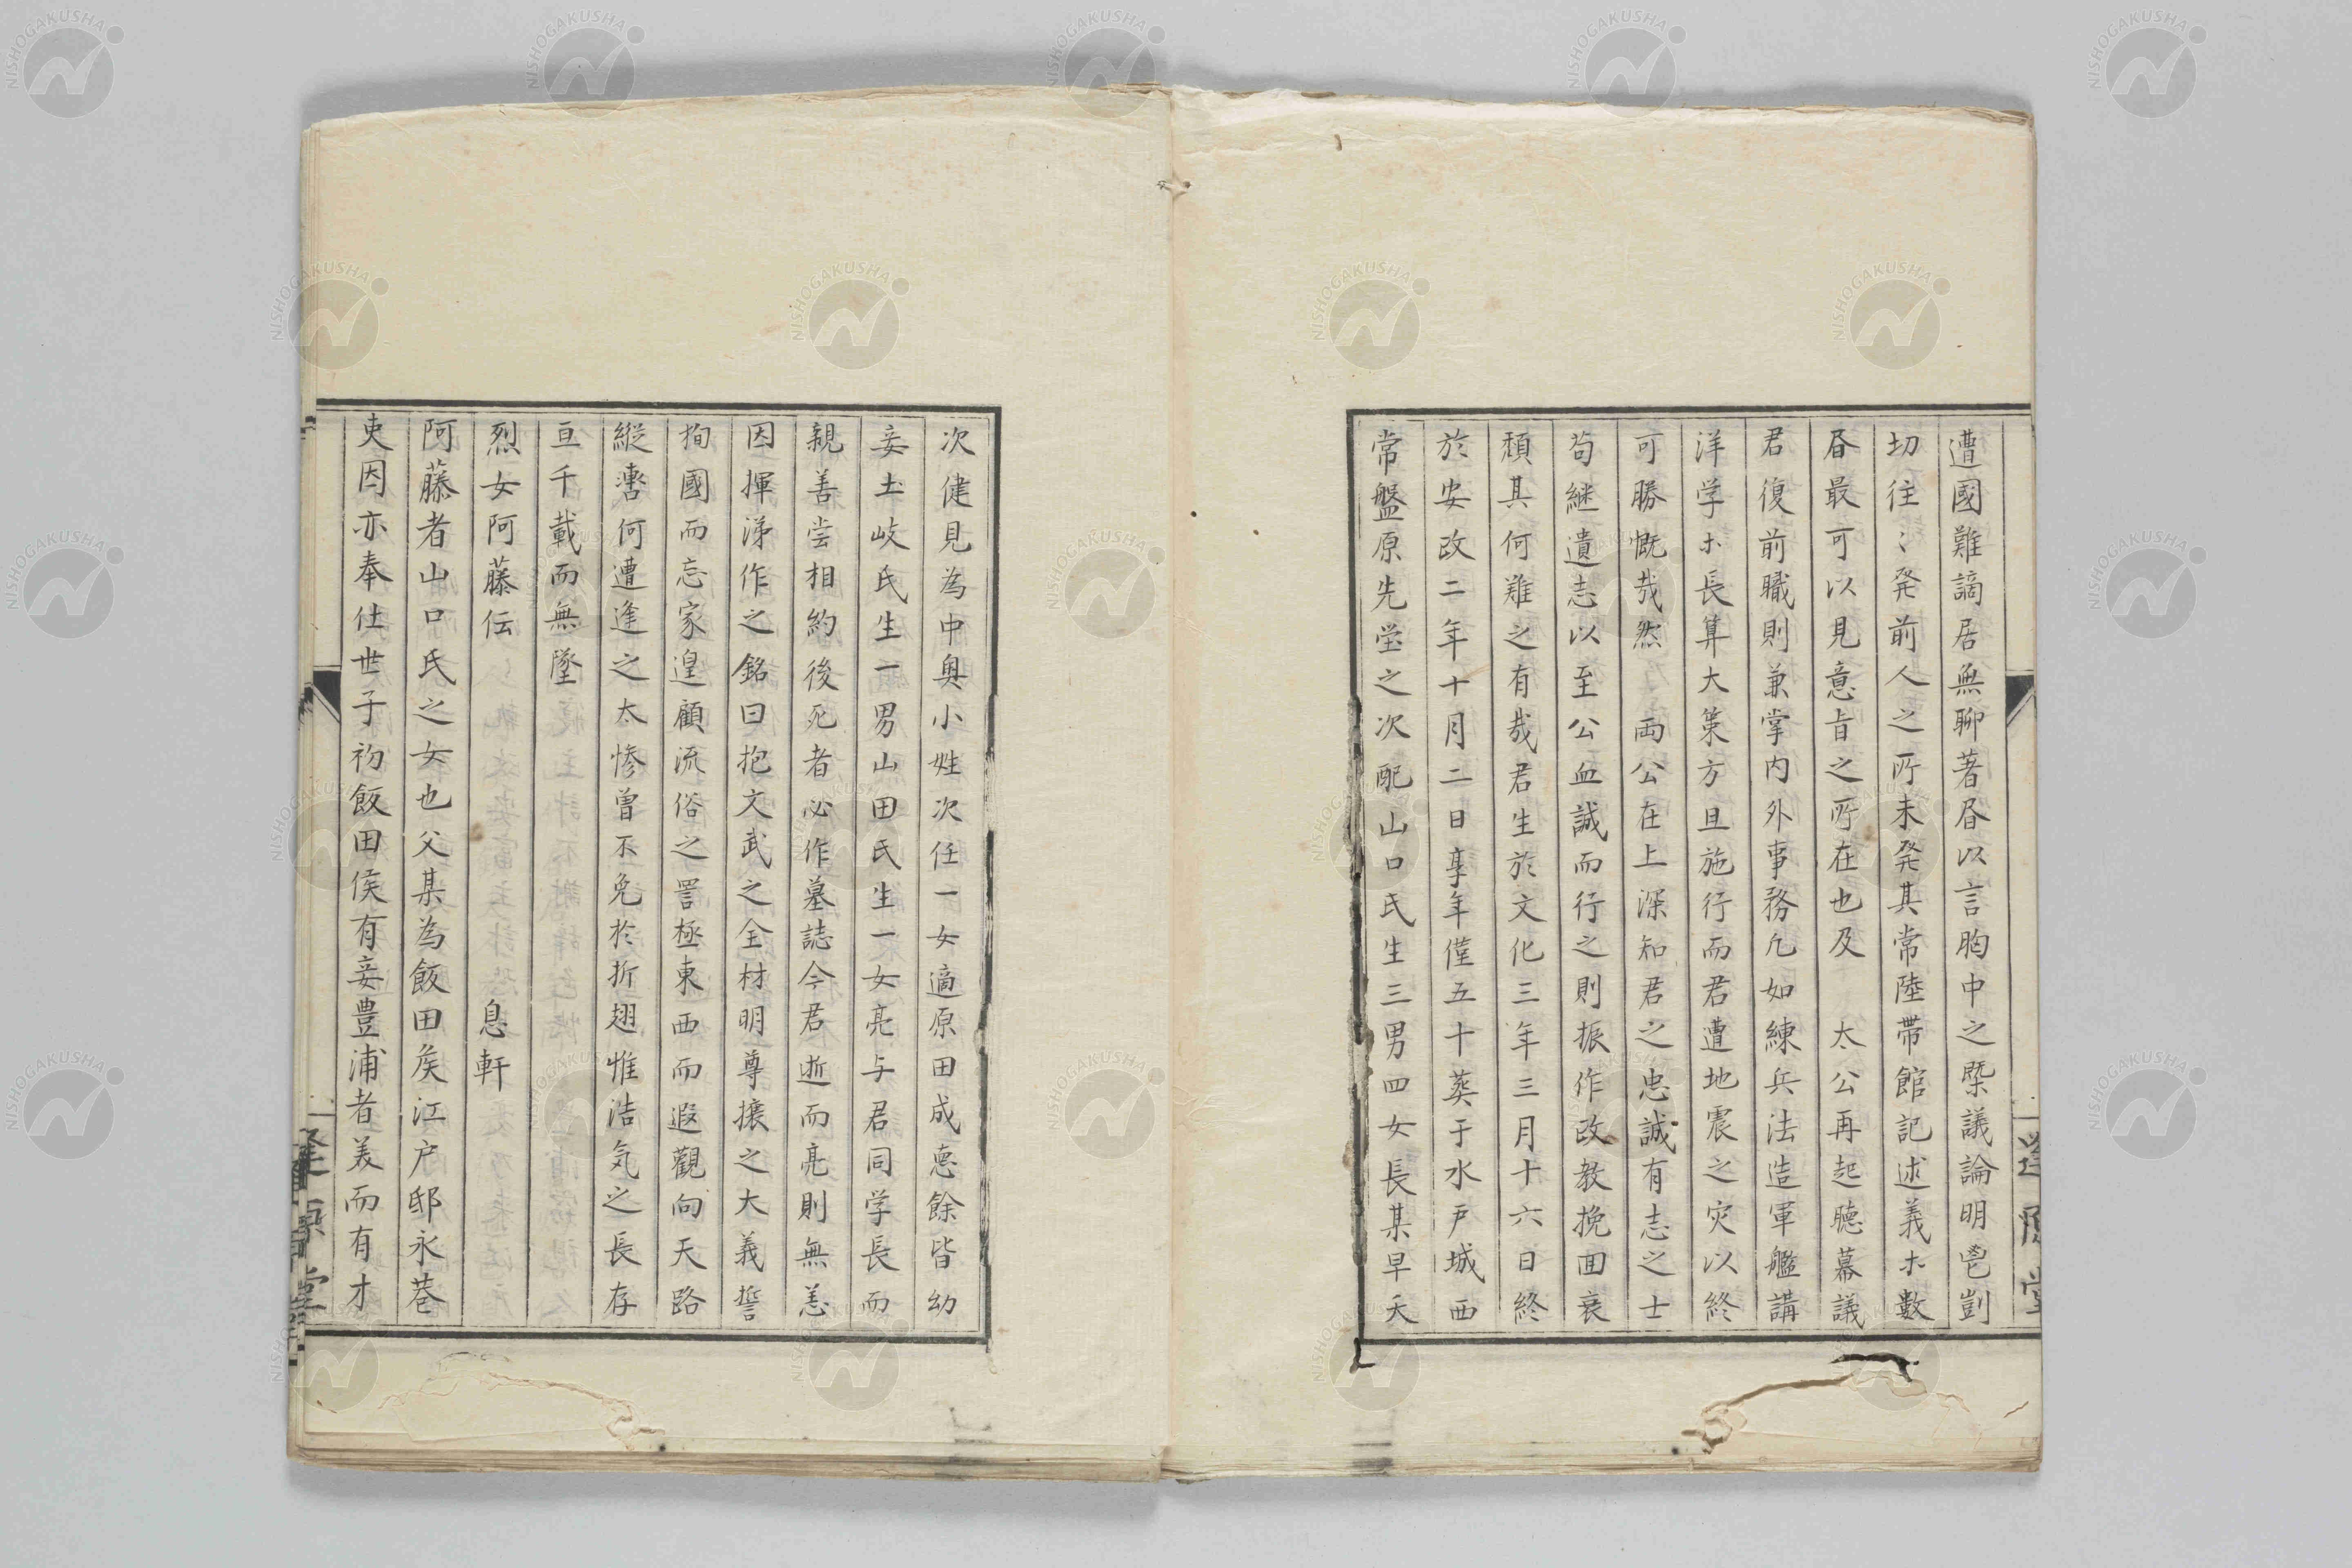 遭國難謫居無聊著昏以言胸中之槩議論明鬯剴
切往〻発前人之所未発其常陸帯館記述義ホ數
昏最可以見意旨之所在也及　太公再起聴幕議
君復前職則兼掌内外事務凡如練兵法造軍艦講
洋学ホ長算大策方且施行而君遭地震之灾以終
可勝慨哉然　両公在上深知君之忠誠有志之士
苟継遺志以至公血誠而行之則振作政教挽回衰
頽其何難之有哉君生於文化三年三月十六日終
於安政二年十月二日享年僅五十葬于水戸城西
常盤原先塋之次配山口氏生三男四女長某早夭
次健見為中奥小姓次任一女適原田成悳餘皆幼
妾土岐氏生一男山田氏生一女亮与君同学長而
親善尝相約後死者必作墓誌今君逝而亮則無恙
因揮涕作之銘曰抱文武之全材明尊攘之大義誓
拘國而忘家遑顧流俗之詈極東西而遐觀向天路
縦轡何遭逢之太惨曽不免於折翅惟浩気之長存
亘千載而無墜
烈女阿藤伝　息軒
阿藤者山口氏之女也父某為飯田矦江戸邸永巷
吏因亦奉仕世子初飯田侯有妾豊浦者美而有才
NISHOGAKUSHA